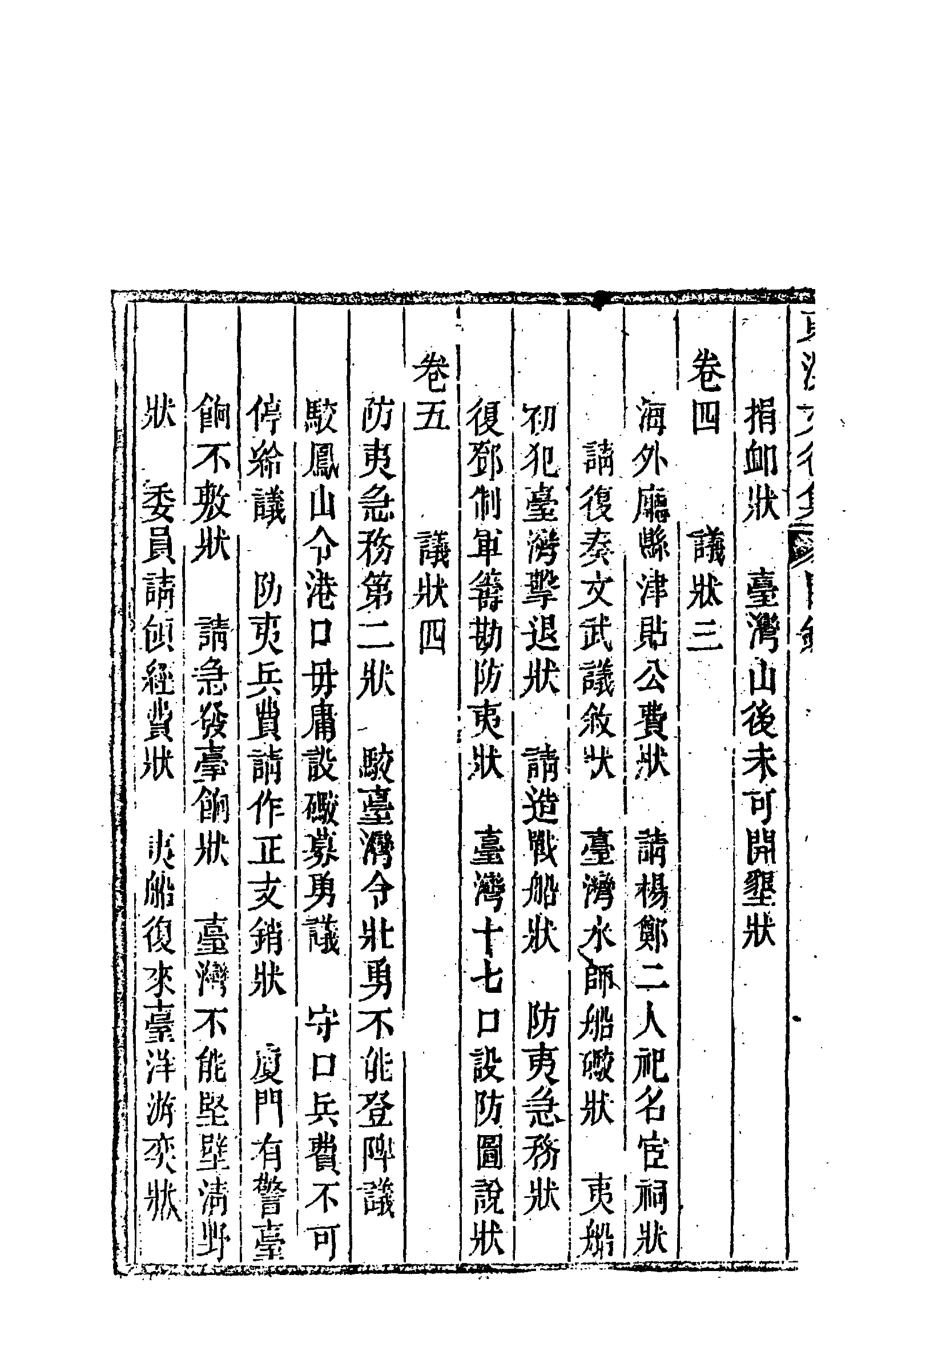 捐卹狀　臺灣山後未可開墾狀
卷四　議狀三
海外廳縣津貼公費狀　請楊鄭二人祀名宦祠狀
請復奏文武議敘狀　臺灣水師船礮狀　夷船
初犯臺灣擊退狀　請造戰船狀　防夷急務狀
復鄧制軍籌勘防夷狀　臺灣十七口設防圖說狀
卷五　議狀四
防夷急務第二狀　駮臺灣令壯勇不能登陴議
駮鳳山令港口毋庸設礮募勇議　守口兵費不可
停給議　防夷兵費請作正支銷狀　廈門有警臺
餉不敷狀　請急發臺餉狀　臺灣不能堅壁清野
狀　委員請領經費狀　夷船復來臺洋游奕狀